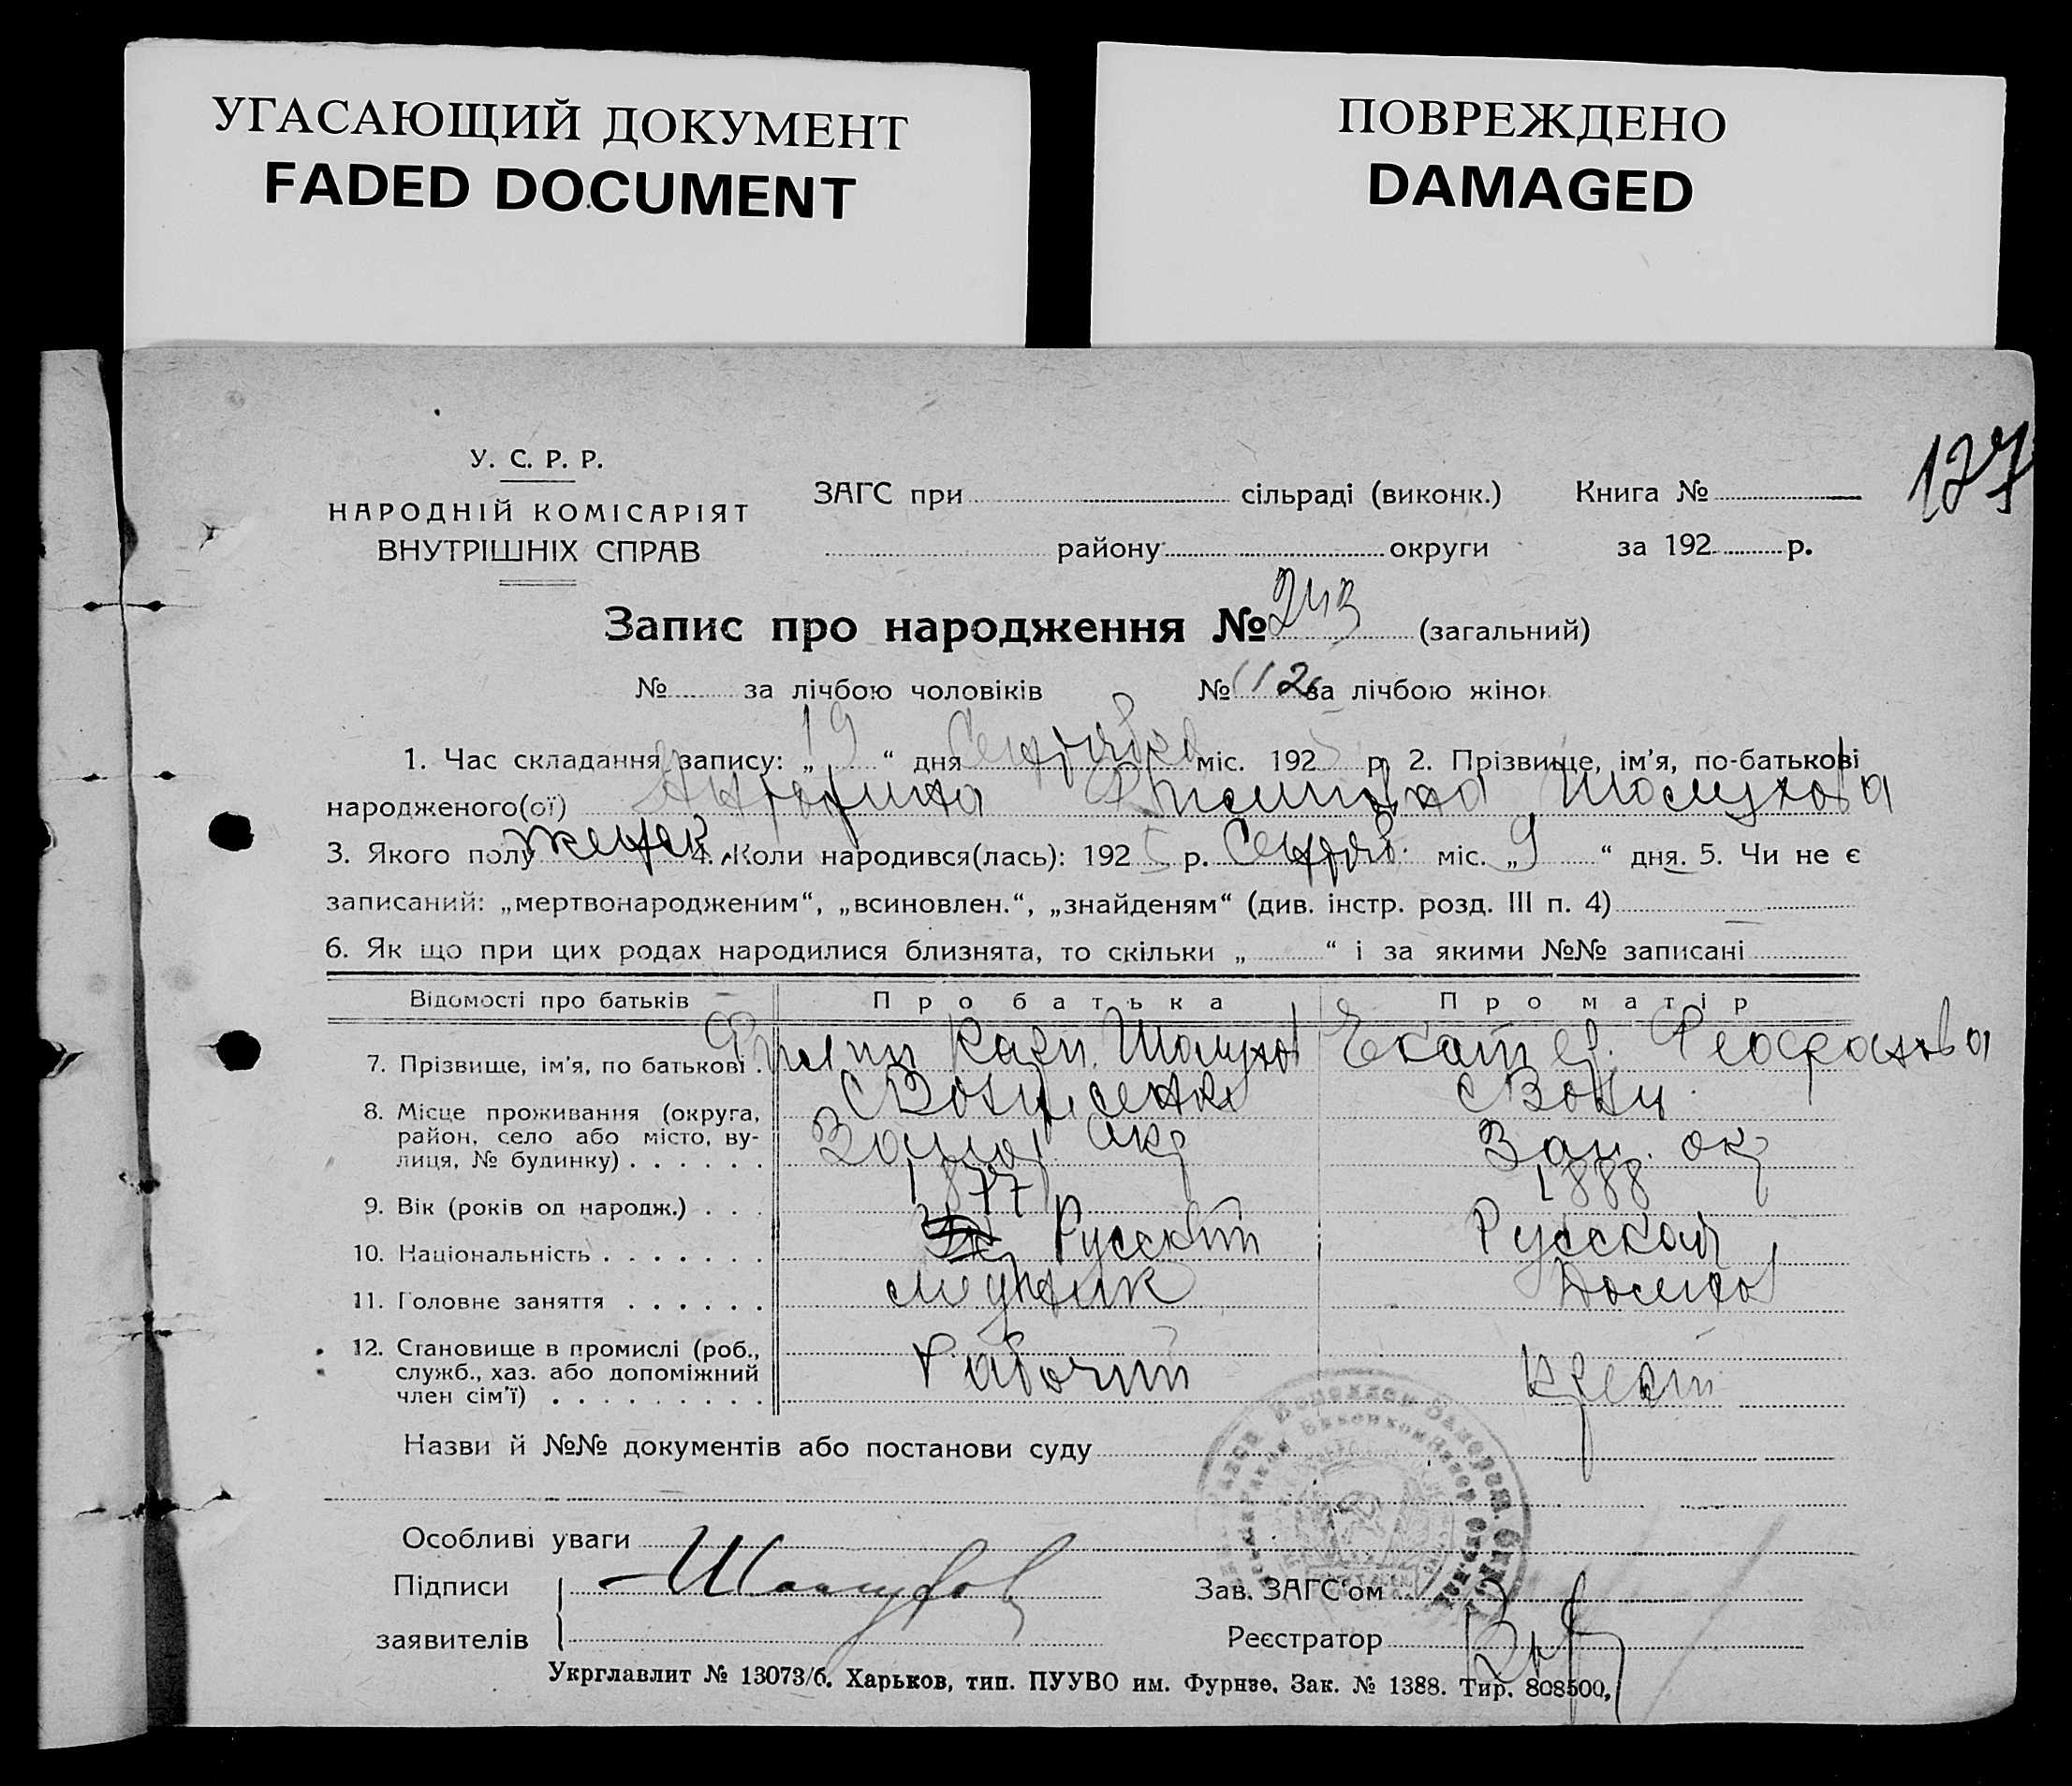 УГАСАЮЩИЙ ДОКУМЕНТ
FADED DOCUMENT
ПОВРЕЖДЕНО
DAMAGED
127
У. С. Р. Р.
НАРОДНІЙ КОМІСАРІЯТ
ВНУТРІШНІХ СПРАВ
ЗАГС при сільраді (виконк.) Книга №
району округи за 192 р.
Запис про народження № 243 (загальний)
№ за лічбою чоловіків № 112 за лічбою жінок
1. Час складання запису: „19“ дня Сентября міс. 1925 р. 2. Прізвище, ім'я, по-батькові
народженого(ої) Шамухова
3. Якого полу женск. 4. Коли народився(лась): 1925 р. Сентяб. міс. „9“ дня. 5. Чи не є
записаний: „мертвонародженим“, „всиновлен.“, „знайденям“ (див. інстр. розд. III п. 4)
6. Як що при цих родах народилися близнята, то скільки „ “ і за якими №№ записані
Відомості про батьків Про батька Про матір
7. Прізвище, ім'я, по батькові . Филипп Шамухов Екатер.
8. Місце проживання (округа,
район, село або місто, ву-
лиця, № будинку) . . . . . . Окр Зап. ок
9. Вік (років од народж.) . . . 1877 1888
10. Національність . . . . . . . Русский Русская
11. Головне заняття . . . . . .
12. Становище в промислі (роб.,
служб., хаз. або допоміжний
член сім'ї) . . . . . . . . . Рабочий Крест
Назви й №№ документів або постанови суду
Особливі уваги
Підписи Шамухов Зав. ЗАГС'ом
заявителів Реєстратор
Укрглавлит № 13073/б. Харьков, тип. ПУУВО им. Фурнзе. Зак. № 1388. Тир. 808500,